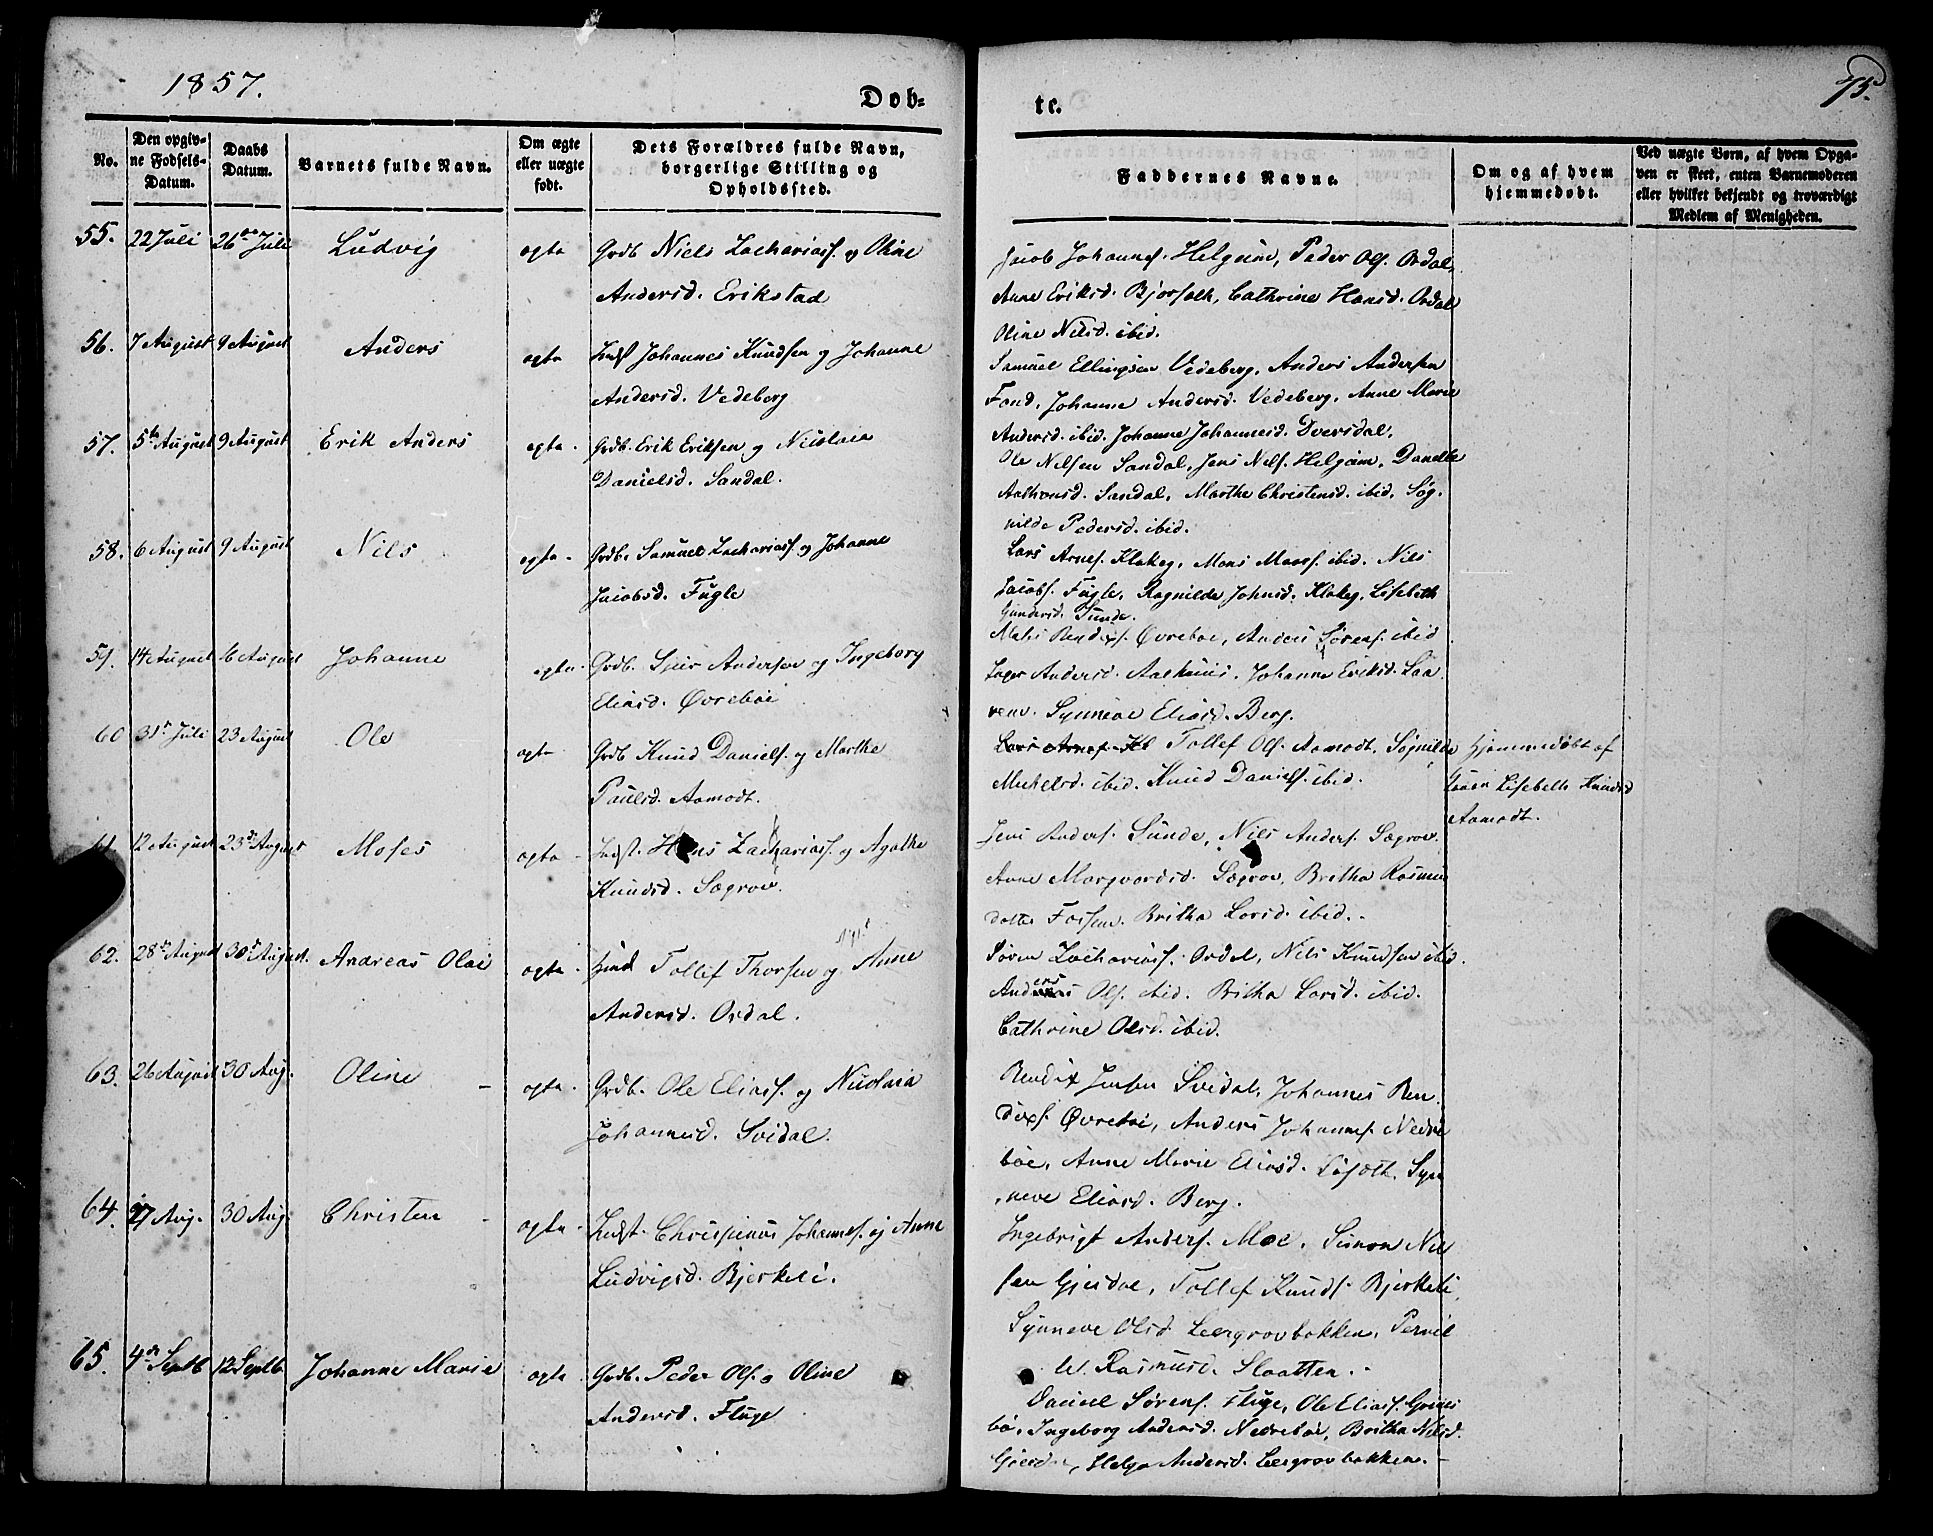 1857.
Døb-
te.
75.
No.
Den opgiv-
ne Fødsels-
Datum.
Daabs
Datum.
Barnets fulde Navn.
Om ægte
eller uægte
født.
Dets Forældres fulde Navn,
borgerlige Stilling og
Opholdssted.
Faddernes Navne.
Om og af hvem
hjemmedøbt.
Ved uægte Børn, af hvem Opga-
ven er skeet, enten Barnemoderen
eller hvilket bekjendt og troværdigt
Medlem af Menigheden.
55. 22 Juli 26de Juli Ludvig ægte Grdb Niels Zachariass. og Oline
Andersd. Erikstad
Jacob Johannes. Helgum, Peder Ols. Ordal,
Anne Eriksd. Cathrine Hansd. Ordal
Oline Nilsd. ibid.
56. 7 August 9 August Anders ægte Indst Johannes Knudsen og Johanne
Andersd. Vedeberg
Samuel Ellingsen Vedeberg, Anders Andersen
Fond, Johanne Andersd. Vedeberg, Anne Marie
Andersd. ibid. Johanne Johannesd. Dversdal,
57. 5te August 9 August Erik Anders ægte Grdb. Erik Eriksen og Nicolaia
Danielsd. Sandal.
Ole Nilsen Sandal, Jens Nils. Helgum,
Sandal, Marthe Christensd. ibid, Søg-
nilde Pedersd. ibid.
58. 6 August 9 August Nils ægte Grdb. Samuel Zachariass. og Johanne
Jacobsd. Fugle
Lars Arnes. Klakeg, Mons Monss. ibid. Nils
Jacobs. Fugle, Ragnilde Johnsd. Klakeg, Lisebeth
Gundersd. Sunde.
59. 14 August 16 August Johanne ægte Grdb. Siur Andersen og Ingeborg
Eliasd. Øvrebøe
Mats Bendixs. Øvrebøe, Anders Sørens. ibid
Inger Andersd. Aarhuus, Johanne Eriksd.
Synneve Eliasd. Berg.
60 31te Juli 23 August Ole ægte Grdb Knud Daniels. og Marthe
Paulsd. Aamodt.
Lars Arnes. Kl Tollef Ols. Aamodt, Søgnilde
Michelsd. ibid. Knud Daniels. ibid.
Hjemmedøbt af
Lisebeth Knudsd
Aamodt.
61. 12 August 23de August Moses ægte Indst. Hans Zachariass. og Agathe
Knudsd. Søgrov.
Jens Anders. Sunde, Nils Anders. Søgrov.
Anne Marqvardsd. Søgrov, Britha Rasmus
datter Fossen. Britha Larsd. ibid.
62. 28de August 30te August. Andreas Olai ægte Tollef Thorsen og Anne
Andersd. Ordal.
Søren Zachariass. Ordal, Nils Knudsen ibid.
Anders Ols. ibid. Britha Larsd. ibid.
Cathrine Olsd. ibid.
63. 26 August 30 Aug. Oline ægte Grdb. Ole Eliass. og Nicolaia
Johannesd. Svidal.
Bendix Jensen Svidal, Johannes Ben-
dixs. Øvrebøe, Anders Johannes. Nedre
bøe, Anne Marie Eliasd. Syn
neve Eliasd. Berg.
64. 27 Aug. 30 Aug. Christen ægte Indst. Chrispinus Johannes. og Anne
Ludvigsd. Bjerkeli.
Ingebrigt Anders. Moe, Simon Niel
sen Gjesdal, Tollef Knuds. Bjerkeli,
Synneve Olsd Leergrovbakken, Pernil
le Rasmusd. Slaatten.
65. 4de Septb 12 Septb. Johanne Marie ægte Grdb. Peder Ols. og Oline
Andersd. Fluge
Daniel Sørens. Fluge, Ole Eliass. Grims
bø, Ingeborg Andersd. Nedrebøe, Britha Nilsd.
Helga Andersd. Leergrovbakken.